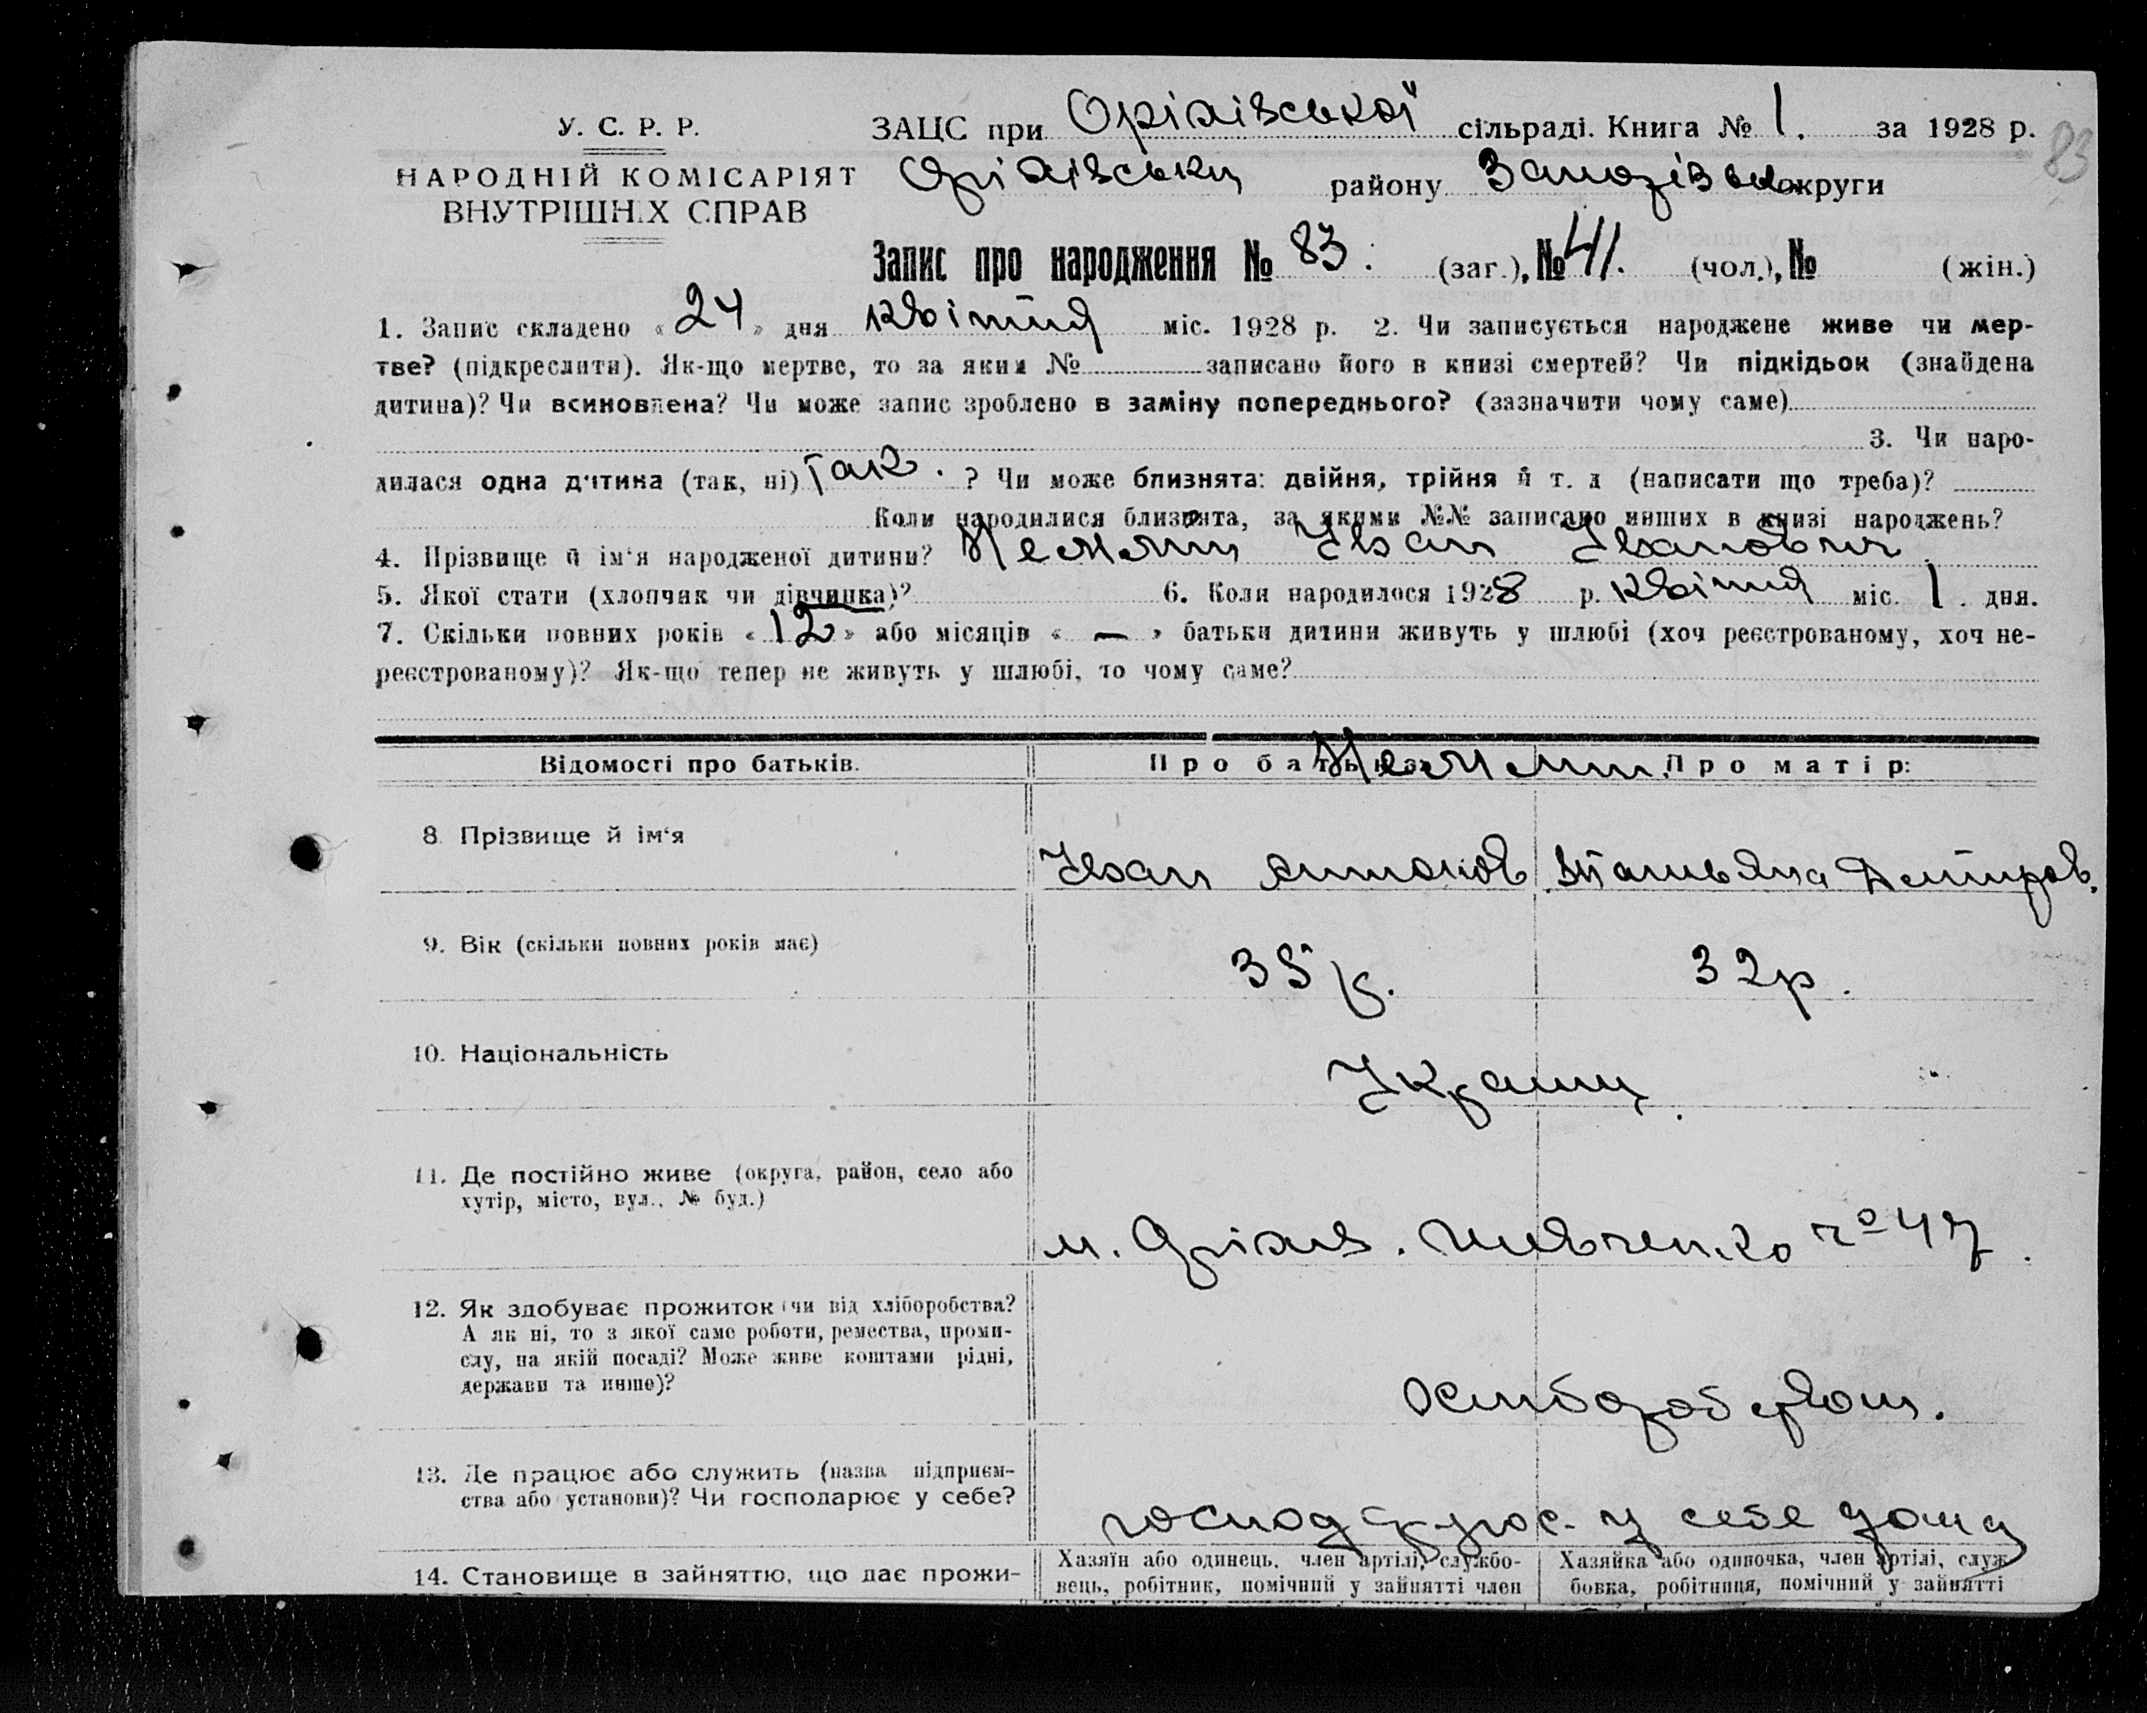 У. С. Р. Р.
НАРОДНІЙ КОМІСАРІЯТ
ВНУТРІШНІХ СПРАВ
ЗАЦС при Оріхівської сільраді. Книга № 1. за 1928 р.
83
Оріхівськ району Запозізьк округи
Запис про народження № 83. (заг.), № 41. (чол.), № (жін.)
1. Запис складено « 24 » дня квітня міс. 1928 р. 2. Чи записується народжене живе чи мер-
тве? (підкреслити). Як-що мертве, то за яким № записано його в книзі смертей? Чи підкідьок (знайдена
дитина)? Чи всиновлена? Чи може запис зроблено в заміну попереднього? (зазначити чому саме)
3. Чи наро-
дилася одна дитина (так, ні) Так. ? Чи може близнята: двійня, трійня й т. д (написати що треба)?
Коли народилися близнята, за якими №№ записано инших в книзі народжень?
4. Прізвище й ім‘я народженої дитини? Іван Іванович.
5. Якої стати (хлопчик чи дівчинка)? 6. Коли народилося 1928 р. квітня міс. 1. дня.
7. Скільки повних років « 12 » або місяців « — » батьки дитини живуть у шлюбі (хоч реєстрованому, хоч не-
реєстрованому)? Як-що тепер не живуть у шлюбі, то чому саме?
Відомості про батьків. Про батька: Про матір:
8. Прізвище й ім‘я Іван Антонов. Татьяна Дмитров.
9. Вік (скільки повних років має) 35 р. 32 р.
10. Національність Україн.
11. Де постійно живе (округа, район, село або
хутір, місто, вул., № буд.)
м. Оріхів. Шевченко № 47.
12. Як здобуває прожиток (чи від хліборобства?
А як ні, то з якої саме роботи, ремества, проми-
слу, на якій посаді? Може живе коштами рідні,
держави та инше)?
хліборобством.
13. Де працює або служить (назва підприєм-
ства або установи)? Чи господарює у себе?
господарює у себе дома
14. Становище в зайняттю, що дає прожи-
Хазяїн або одинець, член артілі, службо-
вець, робітник, помічний у зайнятті член
Хазяйка або одиночка, член артілі, служ-
бовка, робітниця, помічний у зайнятті